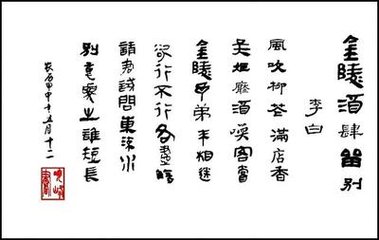 金陵酒肆留别
李白
風吹柳花滿店香
吴姬壓酒唤客嘗
金陵子弟来相送
欲行不行各盡觴
請君試問東流水
别意與之誰短長
农历甲申年五月十二